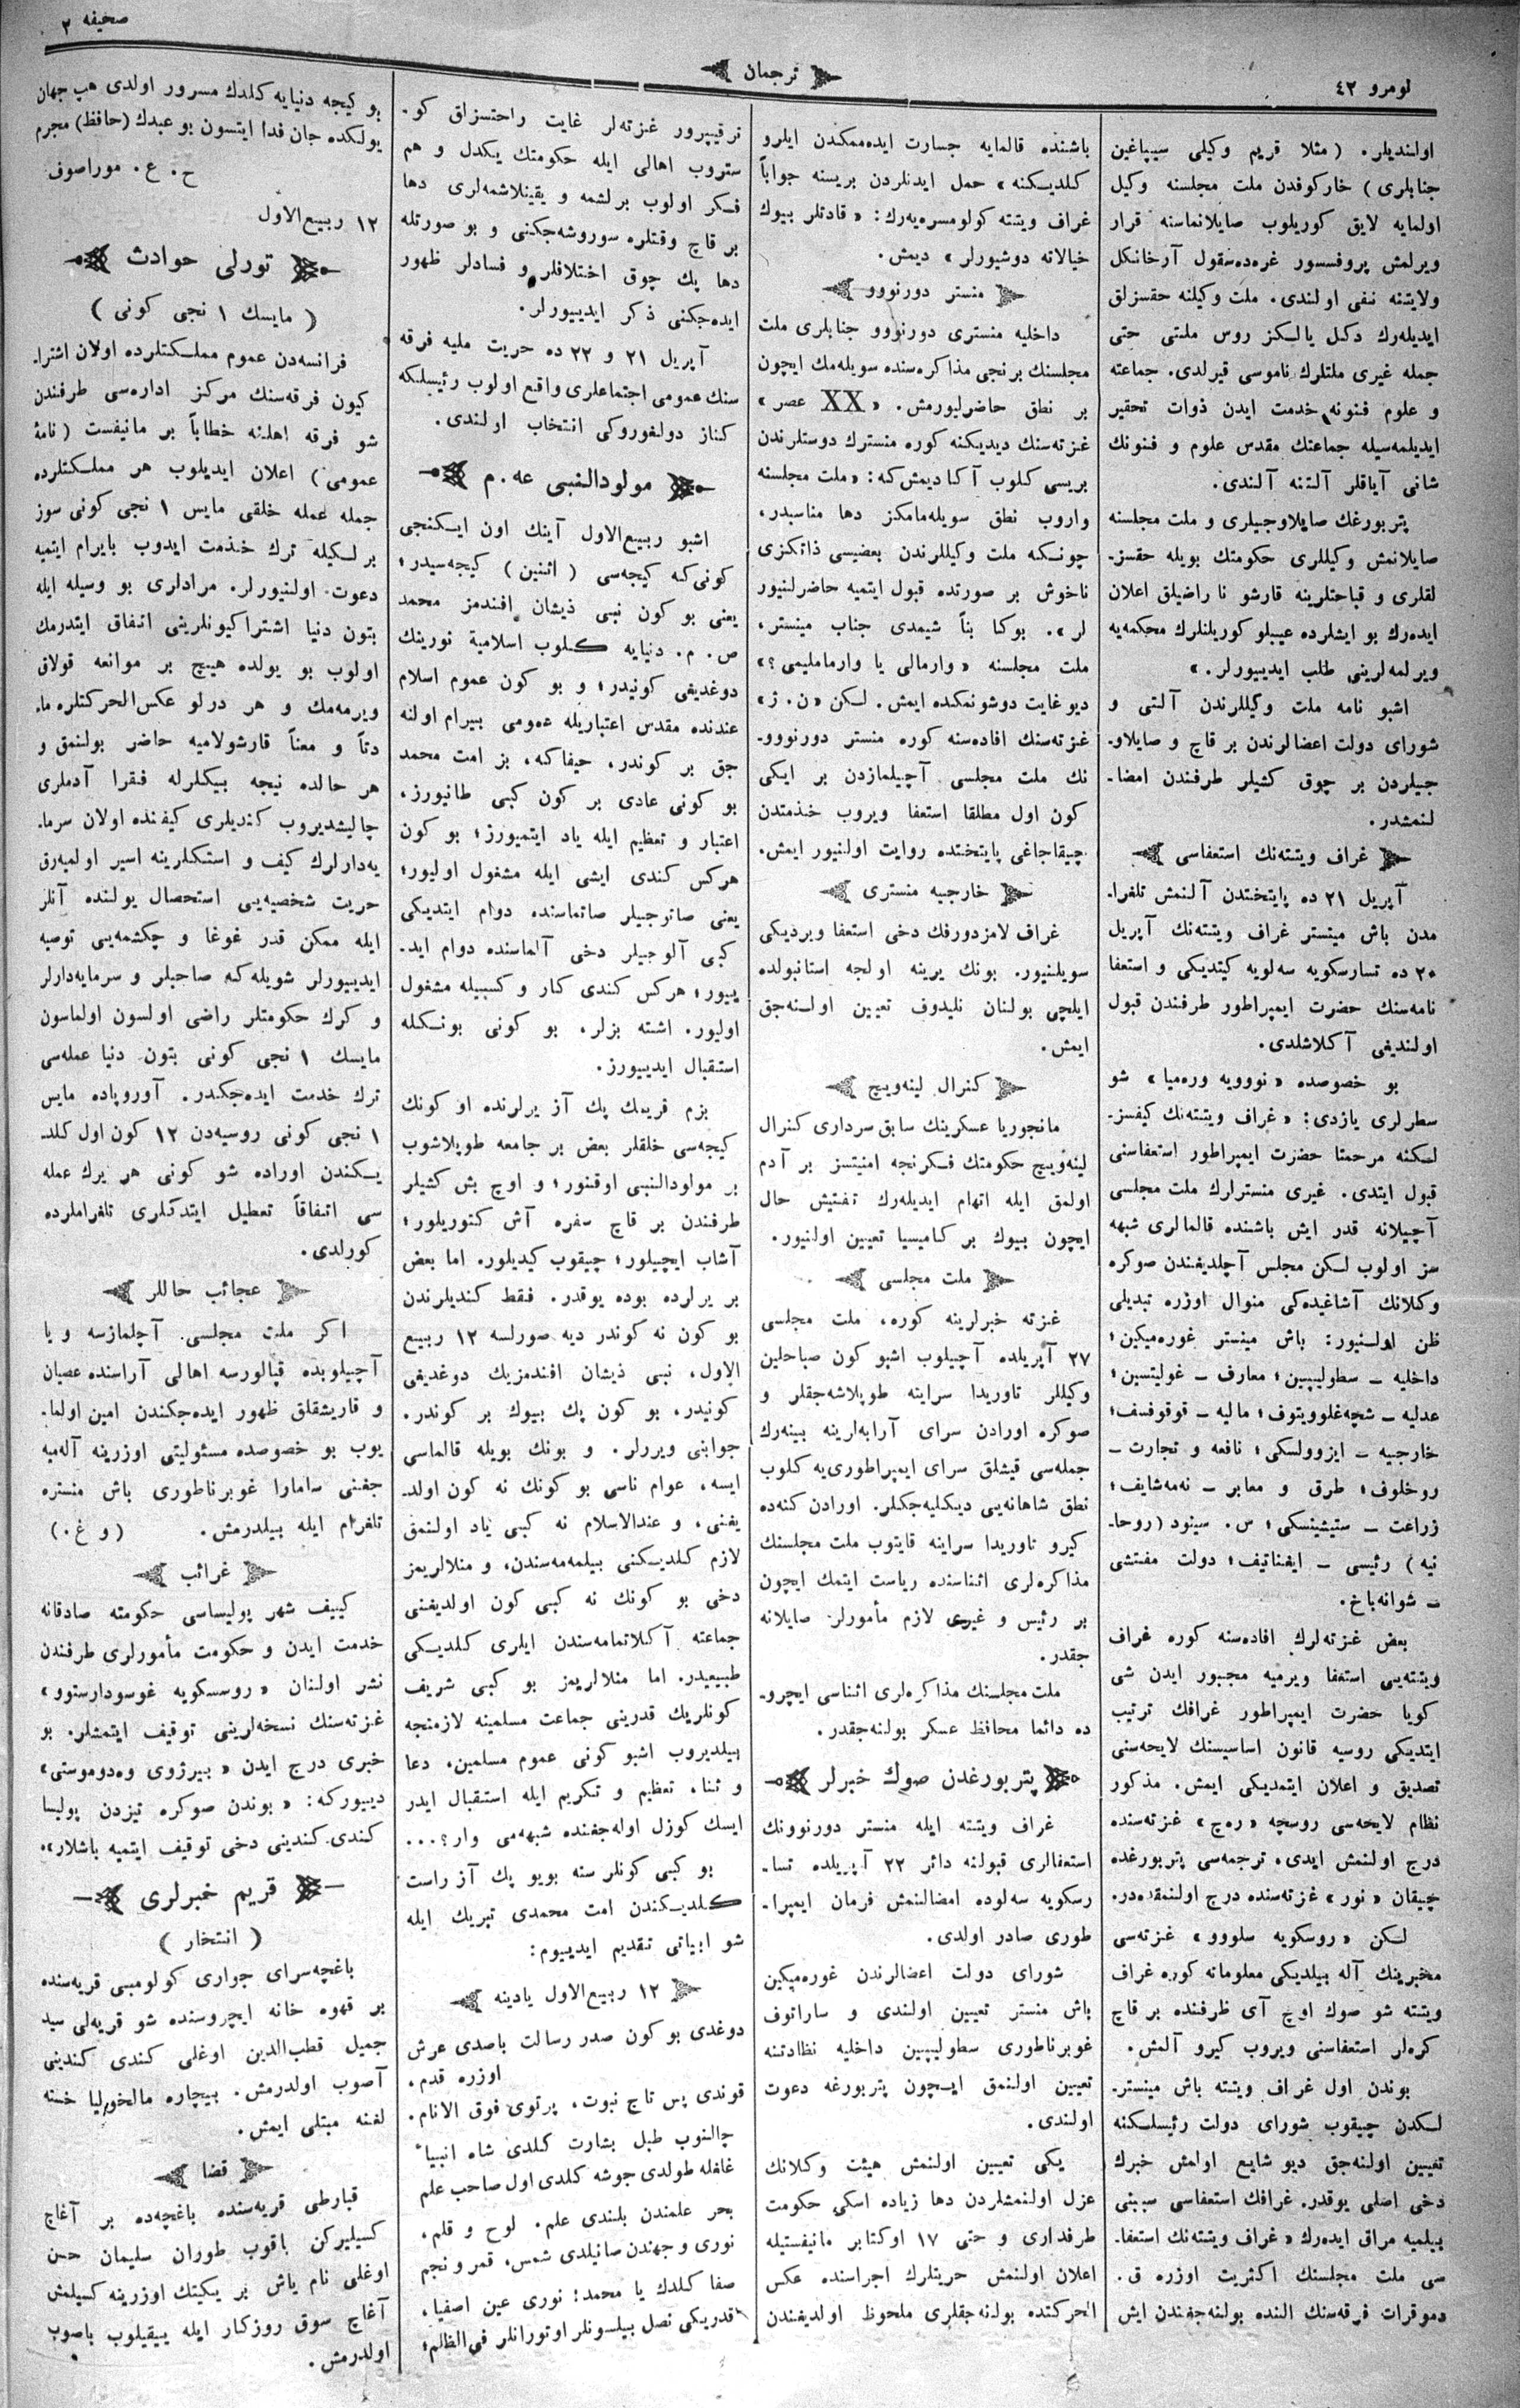 نومرو ٤٢
ترجمان
صحيفه ٣
اولنديلر. (مثلا قريم وكيلى سيپياغين
جنابلرى) خاركوفدن ملت مجلسنه وكيل
اولمايه لايق كوريلوب صايلانماسنه قرار
ويرلمش پروفسسور غره‌ده‌سقول آرخانكل
ولايتنه نفى اولندى. ملت وكيلنه حقسزلق
ايديله‌رك دكل يالكز روس ملتى حتى
جمله غيرى ملتلرك ناموسى قيرلدى. جماعته
و علوم فنونه خدمت ايدن ذوات تحقير
ايديلمه‌سيله جماعتك مقدس علوم و فنونك
شانى آياقلر آلتنه آلندى.
پتربورغك صايلاوجيلرى و ملت مجلسنه
صايلانمش وكيللرى حكومتك بويله حقسز-
لقلرى و قباحتلرينه قارشو نا راضيلق اعلان
ايده‌رك بو ايشلرده عيبلو كوريلنلرك محكمه‌يه
ويرلمه‌لرينى طلب ايدييورلر.»
اشبو نامه ملت وكيللرندن آلتى و
شوراى دولت اعضالرندن بر قاچ و صايلاو-
جيلردن بر چوق كشيلر طرفندن امضا-
لنمشدر.
غراف ويتته‌نك استعفاسى
آپريل ٢١ ده پايتختدن آلنمش تلغرا-
مدن باش مينستر غراف ويتته‌نك آپريل
٢٠ ده تسارسكويه سه‌لويه كيتديكى و استعفا
نامه‌سنك حضرت ايمپراطور طرفندن قبول
اولنديغى آكلاشلدى.
بو خصوصده «نووويه وره‌ميا» شو
سطرلرى يازدى: «غراف ويتته‌نك كيفسز-
لكنه مرحمتا حضرت ايمپراطور استعفاسنى
قبول ايتدى. غيرى منسترلرك ملت مجلسى
آچيلانه قدر ايش باشنده قالمالرى شبهه
سز اولوب لكن مجلس آچلديغندن صوكره
وكلانك آشاغيده‌كى منوال اوزره تبديلى
ظن اولنيور: باش مينستر غوره‌ميكين؛
داخليه – سطوليپين؛ معارف – غوليتسين؛
عدليه – شچه‌غلوويتوف؛ ماليه – قوقوفسف؛
خارجيه – ايزوولسكى؛ نافعه و تجارت –
روخلوف؛ طرق و معابر – نه‌مه‌شايف؛
زراعت – ستيشينسكى؛ س. سينود (روحا-
نيه) رئيسى – ايغناتيف؛ دولت مفتشى
– شوانه‌باخ.
بعض غزته‌لرك افاده‌سنه كوره غراف
ويتته‌يى استعفا ويرميه مجبور ايدن شى
كويا حضرت ايمپراطور غرافك ترتيب
ايتديكى روسيه قانون اساسيسنك لايحه‌سنى
تصديق و اعلان ايتمديكى ايمش. مذكور
نظام لايحه‌سى روسچه «ره‌چ» غزته‌سنده
درج اولنمش ايدى، ترجمه‌سى پتربورغده
چيقان «نور» غزته‌سنده درج اولنمقده‌در.
لكن «روسكويه سلووو» غزته‌سى
مخبرينك آله بيلديكى معلوماته كوره غراف
ويتته شو صوك اوچ آى ظرفنده بر قاچ
كره‌لر استعفاسنى ويروب كيرو آلمش.
بوندن اول غراف ويتته باش مينستر-
لكدن چيقوب شوراى دولت رئيسلكنه
تعيين اولنه‌جق ديو شايع اولمش خبرك
دخى اصلى يوقدر. غرافك استعفاسى سببنى
بيلميه مراق ايده‌رك «غراف ويتته‌نك استعفا-
سى ملت مجلسنك اكثريت اوزره ق.
دموقرات فرقه‌سنك النده بولنه‌جغندن ايش
باشنده قالمايه جسارت ايده‌ممكدن ايلرو
كلديكنه» حمل ايدنلردن بريسنه جواباً
غراف ويتته كولومسره‌يه‌رك: «قادتلر بيوك
خيالاته دوشيورلر» ديمش.
منستر دورنووو
داخليه منسترى دورنووو جنابلرى ملت
مجلسنك برنجى مذاكره‌سنده سويله‌مك ايچون
بر نطق حاضرليورمش. «XX عصر»
غزته‌سنك ديديكنه كوره منسترك دوستلرندن
بريسى كلوب آكا ديمش‌كه: «ملت مجلسنه
واروب نطق سويله‌مامكز دها مناسبدر،
چونكه ملت وكيللرندن بعضيسى ذاتكزى
ناخوش بر صورتده قبول ايتميه حاضرلنيور
لر». بوكا بناً شيمدى جناب مينستر،
ملت مجلسنه «وارمالى يا وارماملیمى؟»
ديو غايت دوشونمكده ايمش. لكن «ن. ژ»
غزته‌سنك افاده‌سنه كوره منستر دورنووو-
نك ملت مجلسى آچيلمازدن بر ايكى
كون اول مطلقا استعفا ويروب خذمتدن
چيقاجاغى پايتختده روايت اولنيور ايمش.
خارجيه منسترى
غراف لامزدورفك دخى استعفا ويرديكى
سويلنيور. بونك يرينه اولجه استانبولده
ايلچى بولنان نليدوف تعيين اولنه‌جق
ايمش.
كنرال لينه‌ويچ
مانجوريا عسكرينك سابق سردارى كنرال
لينه‌ويچ حكومتك فكرنجه امنيتسز بر آدم
اولمق ايله اتهام ايديله‌رك تفتيش حال
ايچون بيوك بر كاميسيا تعيين اولنيور.
ملت مجلسى
غزته خبرلرينه كوره، ملت مجلسى
٢٧ آپريلده آچيلوب اشبو كون صباحلين
وكيللر تاوريدا سراينه طوپلاشه‌جقلر و
صوكره اورادن سراى آرابه‌لرينه بينه‌رك
جمله‌سى قيشلق سراى ايمپراطورى‌يه كلوب
نطق شاهانه‌يى ديكليه‌جكلر. اورادن كنه‌ده
كيرو تاوريدا سراينه قايتوب ملت مجلسنك
مذاكره‌لرى اثناسنده رياست ايتمك ايچون
بر رئيس و غيرى لازم مأمورلر صايلانه
جقدر.
ملت مجلسنك مذاكره‌لرى اثناسى ايچرو-
ده دائما محافظ عسكر بولنه‌جقدر.
پتربورغدن صوك خبرلر
غراف ويتته ايله منستر دورنوونك
استعفالرى قبولنه دائر ٢٢ آپريلده تسا-
رسكويه سه‌لوده امضالنمش فرمان ايمپرا-
طورى صادر اولدى.
شوراى دولت اعضالرندن غوره‌ميكين
باش منستر تعيين اولندى و ساراتوف
غوبرناطورى سطوليپين داخليه نظارتنه
تعيين اولنمق ايچون پتربورغه دعوت
اولندى.
يكى تعيين اولنمش هيئت وكلانك
عزل اولنمشلردن دها زياده اسكى حكومت
طرفدارى و حتى ١٧ اوكتابر مانيفستيله
اعلان اولنمش حريتلرك اجراسنده عكس
الحركتده بولنه‌جقلرى ملحوظ اولديغندن
ترقيپرور غزته‌لر غايت راحتسزلق كو-
ستروب اهالى ايله حكومتك يكدل و هم
فكر اولوب برلشمه و يقينلاشمه‌لرى دها
بر قاچ وقتلره سوروشه‌جكنى و بو صورتله
دها پك چوق اختلافلر و فسادلر ظهور
ايده‌جكنى ذكر ايدييورلر.
آپريل ٢١ و ٢٢ ده حريت مليه فرقه
سنك عمومى اجتماعلرى واقع اولوب رئيسلكه
كناز دولغوروكى انتخاب اولندى.
مولودالنبى عه.م
اشبو ربيع‌الاول آينك اون ايكنجى
كونى‌كه كيجه‌سى (اثنين) كيجه‌سيدر؛
يعنى بو كون نبى ذيشان افندمز محمد
ص. م. دنيايه كلوب اسلاميه نورينك
دوغديغى كونيدر؛ و بو كون عموم اسلام
عندنده مقدس اعتباريله عمومى بيرام اولنه
جق بر كوندر، حيفاكه، بز امت محمد
بو كونى عادى بر كون كبى طانيورز،
اعتبار و تعظيم ايله ياد ايتميورز؛ بو كون
هركس كندى ايشى ايله مشغول اوليور؛
يعنى صاتوجيلر صاتماسنده دوام ايتديكى
كبى آلوجيلر دخى آلماسنده دوام ايد-
ييور؛ هركس كندى كار و كسبيله مشغول
اوليور. اشته بزلر، بو كونى بونكله
استقبال ايدييورز.
بزم قريمك پك آز يرلرنده او كونك
كيجه‌سى خلقلر بعض بر جامعه طوپلاشوب
بر مولودالنبى اوقنور؛ و اوچ بش كشيلر
طرفندن بر قاچ سفره آش كتوريلور؛
آشاب ايچيلور؛ چيقوب كيديلور. اما بعض
بر يرلرده بوده يوقدر. فقط كنديلرندن
بو كون نه كوندر ديه صورلسه ١٢ ربيع
الاول، نبى ذيشان افندمزيك دوغديغى
كونيدر، بو كون پك بيوك بر كوندر.
جوابنى ويررلر. و بونك بويله قالماسى
ايسه، عوام ناسى بو كونك نه كون اولد-
يغنى، و عندالاسلام نه كبى ياد اولنمق
لازم كلديكنى بيلمه‌مه‌سندن، و منلالريمز
دخى بو كونك نه كبى كون اولديغنى
جماعته آكلاتمامه‌سندن ايلرى كلديكى
طبيعيدر. اما منلالريمز بو كبى شريف
كونلريك قدرينى جماعت مسلمينه لازمنجه
بيلديروب اشبو كونى عموم مسلمين، دعا
و ثناء، تعظيم و تكريم ايله استقبال ايدر
ايسك كوزل اوله‌جغنده شبهه‌مى وار؟...
بو كبى كونلر سنه بويو پك آز راست
كلديكندن امت محمدى تبريك ايله
شو ابياتى تقديم ايدييوم:
١٢ ربيع الاول يادينه
دوغدى بو كون صدر رسالت باصدى عرش
اوزره قدم،
قوندى پس تاج نبوت، پرتوى فوق الانام.
چالنوب طبل بشارت كلدى شاه انبياء
غلغله طولدى جوشه كلدى اول صاحب علم
بحر علمندن بلندى علم. لوح و قلم،
نورى وجهندن صانيلدى شمس، قمر و نجم
صفا كلدك يا محمد! نورى عين اصفيا،
قدريكى نصل بيلسونلر اوتورانلر فى‌الظلم؛
بو كيجه دنيايه كلدك مسرور اولدى هپ جهان
يولكده جان فدا ايتسون بو عبدك (حافظ) مجرم
ح. ع. موراصوف
١٢ ربيع‌الاول
تورلى حوادث
(مايسك ١ نجى كونى)
فرانسه‌دن عموم مملكتلرده اولان اشترا-
كيون فرقه‌سنك مركز اداره‌سى طرفندن
شو فرقه اهلنه خطاباً بر مانيفست (نامهٔ
عمومى) اعلان ايديلوب هر مملكتلرده
جمله عمله خلقى مايس ١ نجى كونى سوز
برلكيله ترك خذمت ايدوب بايرام ايتميه
دعوت اولنيورلر. مرادلرى بو وسيله ايله
بتون دنيا اشتراكيونلرينى اتفاق ايتدرمك
اولوب بو يولده هيچ بر موانعه قولاق
ويرمه‌مك و هر درلو عكس‌الحركتلره ما-
دتاً و معناً قارشولاميه حاضر بولنمق و
هر حالده نيچه بيكلرله فقرا آدملرى
چاليشديروب كنديلرى كيفنده اولان سرما-
يه‌دارلرك كيف و استكلرينه اسير اولميه‌رق
حريت شخصيه‌يى استحصال يولنده آنلر
ايله ممكن قدر غوغا و چكشمه‌يى توصيه
ايدييورلر شويله‌كه صاحبلر و سرمايه‌دارلر
و كرك حكومتلر راضى اولسون اولماسون
مايسك ١ نجى كونى بتون دنيا عمله‌سى
ترك خدمت ايده‌جكدر. آوروپاده مايس
١ نجى كونى روسيه‌دن ١٢ كون اول كلد-
يكندن اوراده شو كونى هر يرك عمله
سى اتفاقاً تعطيل ايتدكلرى تلغراملرده
كورلدى.
عجائب حاللر
اكر ملت مجلسى آچلمازسه و يا
آچيلوبده قپالورسه اهالى آراسنده عصيان
و قاريشقلق ظهور ايده‌جكندن امين اولما-
يوب بو خصوصده مسئوليتى اوزرينه آله‌ميه
جغنى سامارا غوبرناطورى باش منستره
تلغرام ايله بيلدرمش. (و غ.)
غرائب
كييف شهر پوليساسى حكومته صادقانه
خدمت ايدن و حكومت مأمورلرى طرفندن
نشر اولنان «روسسكويه غوسودارستوو»
غزته‌سنك نسخه‌لرينى توقيف ايتمشلر. بو
خبرى درج ايدن «بيرژوى وه‌دوموستى»
دييوركه: «بوندن صوكره تيزدن پوليسا
كندى كندينى دخى توقيف ايتميه باشلار».
قريم خبرلرى
(انتخار)
باغچه‌سراى جوارى كولومبى قريه‌سنده
بر قهوه خانه ايچروسنده شو قريه‌لى سيد
جميل قطب‌الدين اوغلى كندى كندينى
آصوب اولدرمش. بيچاره مالخوليا خسته
لغنه مبتلى ايمش.
قضا
قبارطى قريه‌سنده باغچه‌ده بر آغاچ
كسيليركن باقوب طوران سليمان حسن
اوغلى نام ياش بر يكيتك اوزرينه كسيلمش
آغاچ سوق روزكار ايله ييقيلوب باصوب
اولدرمش.